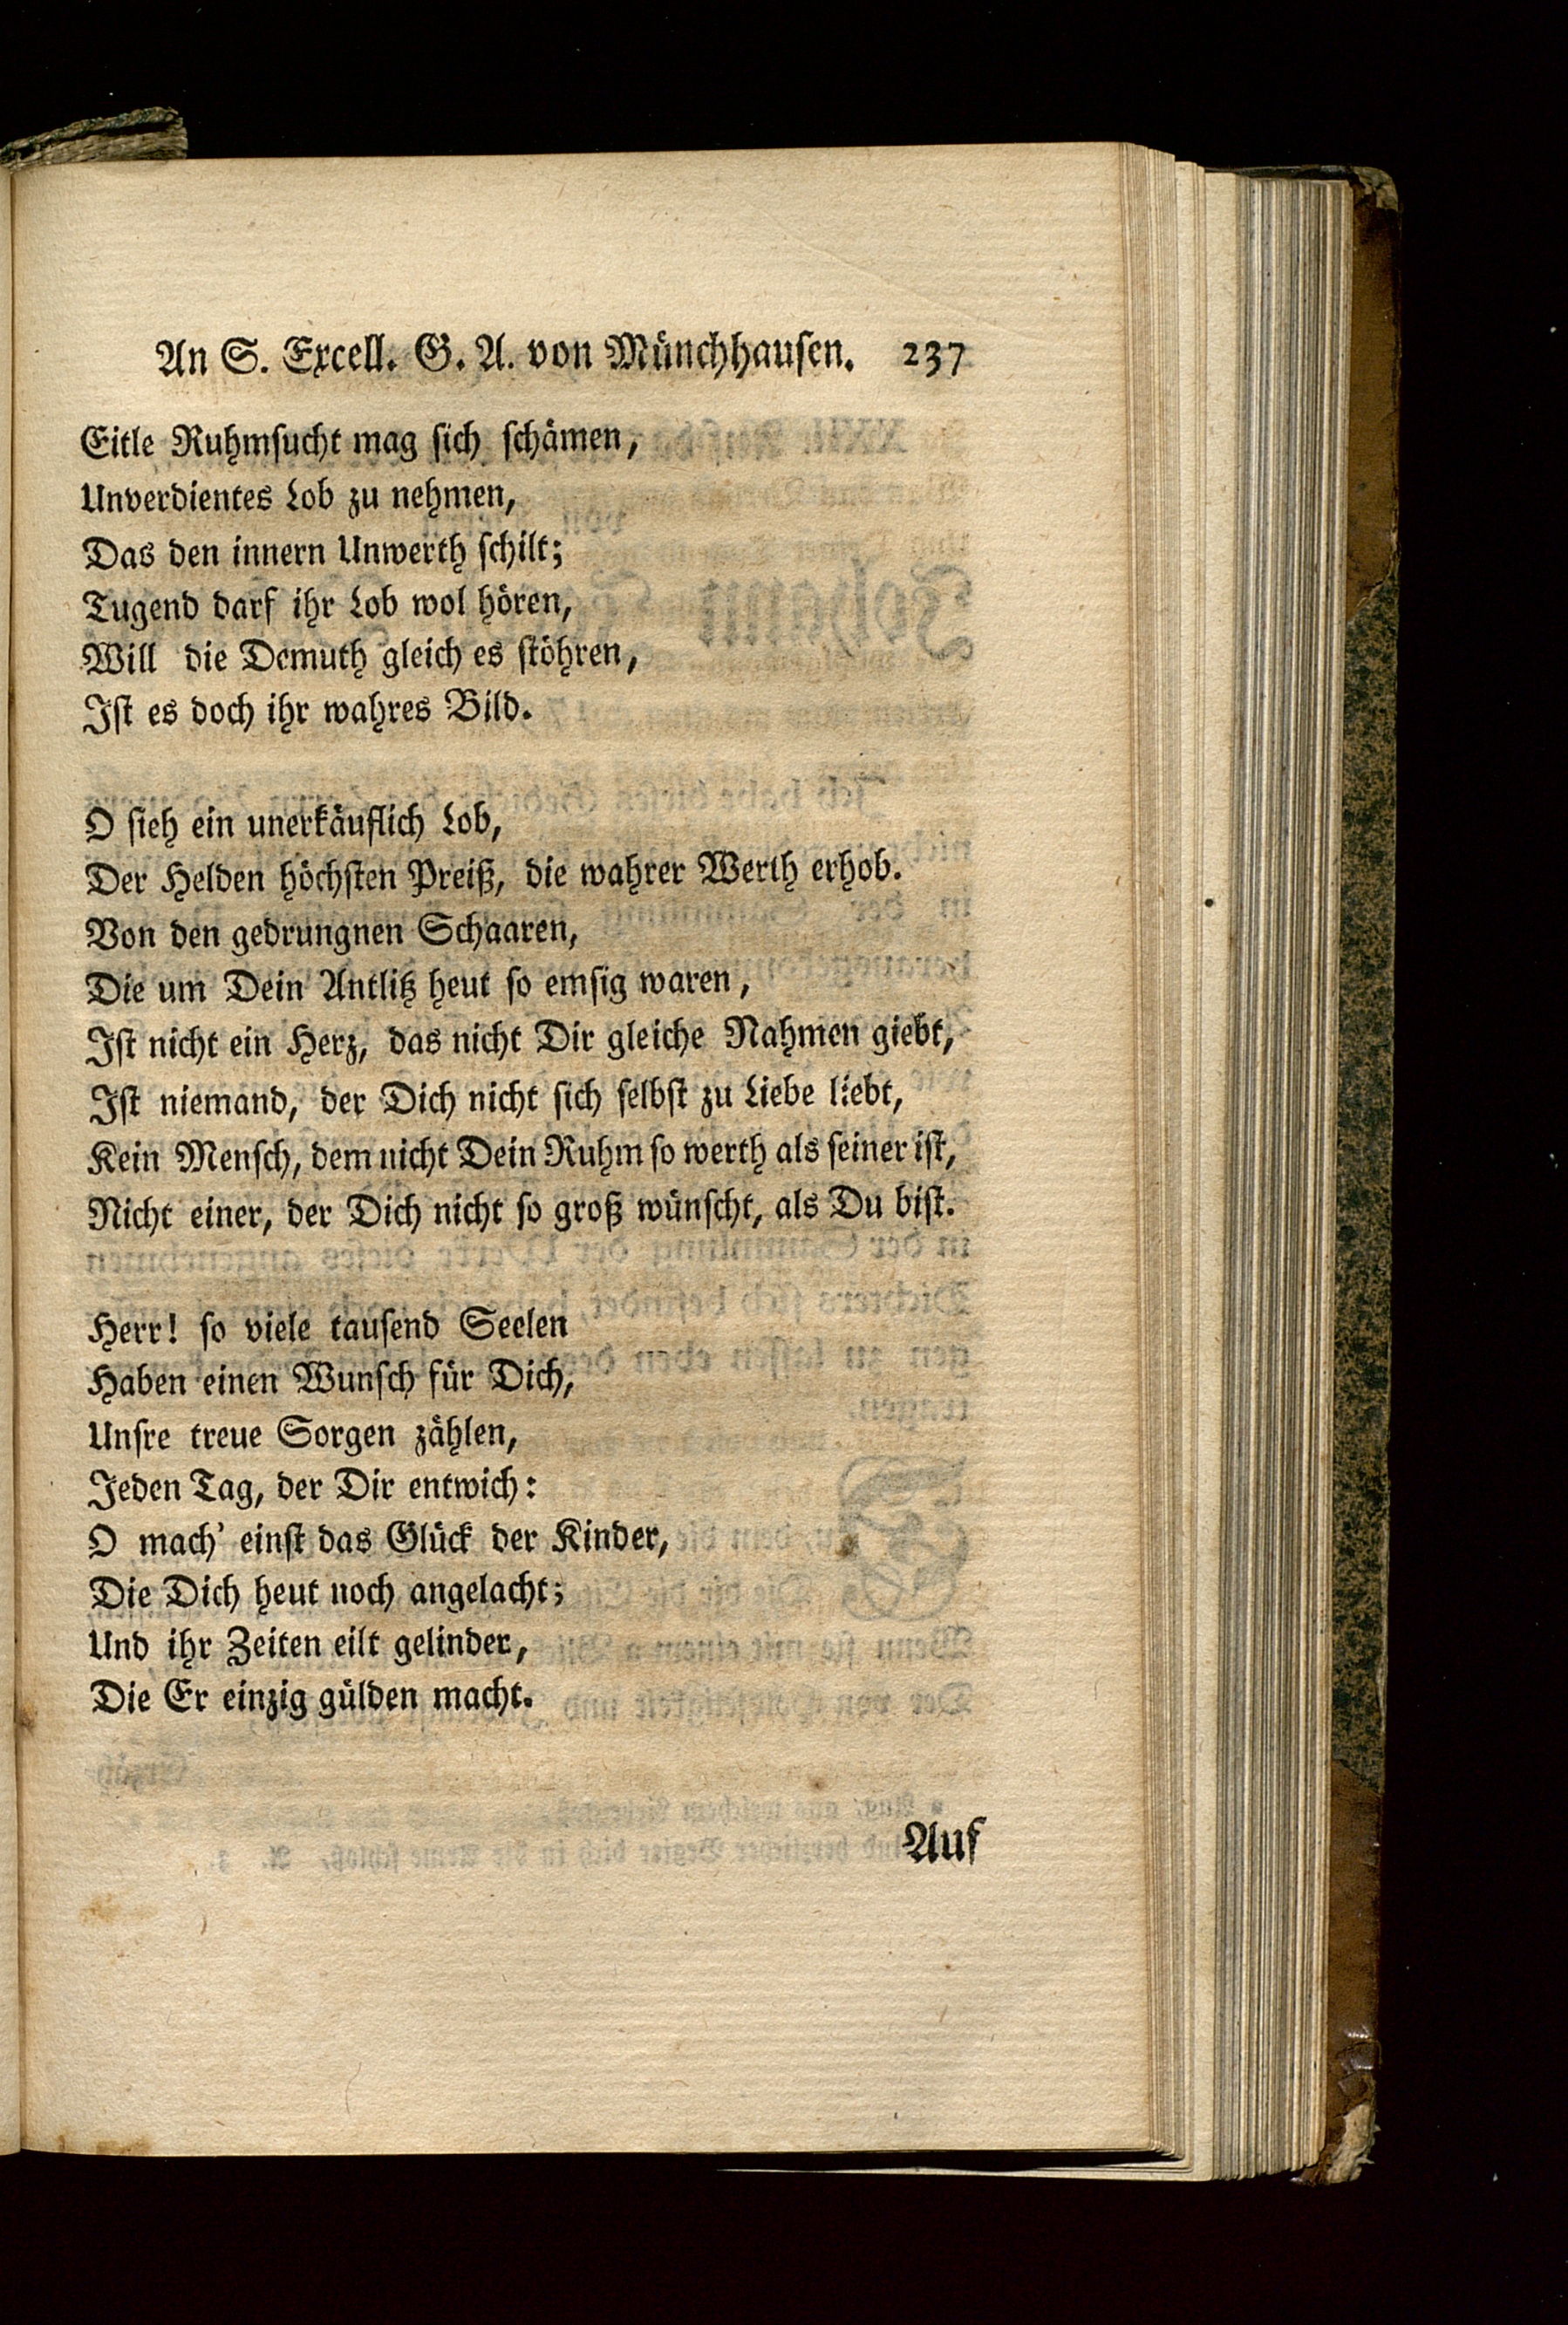 An S. Excell. G. A. von Münchhausen. 237
Eitle Ruhmsucht mag sich schämen,
Unverdientes Lob zu nehmen,
Das den innern Unwerth schilt;
Tugend darf ihr Lob wol hören,
Will die Demuth gleich es stöhren,
Ist es doch ihr wahres Bild.
O sieh ein unerkäuflich Lob,
Der Helden höchsten Preiß, die wahrer Werth erhob.
Von den gedrungnen Schaaren,
Die um Dein Antlitz heut so emsig waren,
Ist nicht ein Herz, das nicht Dir gleiche Nahmen giebt,
Ist niemand, der Dich nicht sich selbst zu Liebe liebt,
Kein Mensch, dem nicht Dein Ruhm so werth als seiner ist,
Nicht einer, der Dich nicht so groß wünscht, als Du bist.
Herr! so viele tausend Seelen
Haben einen Wunsch für Dich,
Unsre treue Sorgen zählen,
Jeden Tag, der Dir entwich:
O mach' einst das Glück der Kinder,
Die Dich heut noch angelacht;
Und ihr Zeiten eilt gelinder,
Die Er einzig gülden macht.
Auf